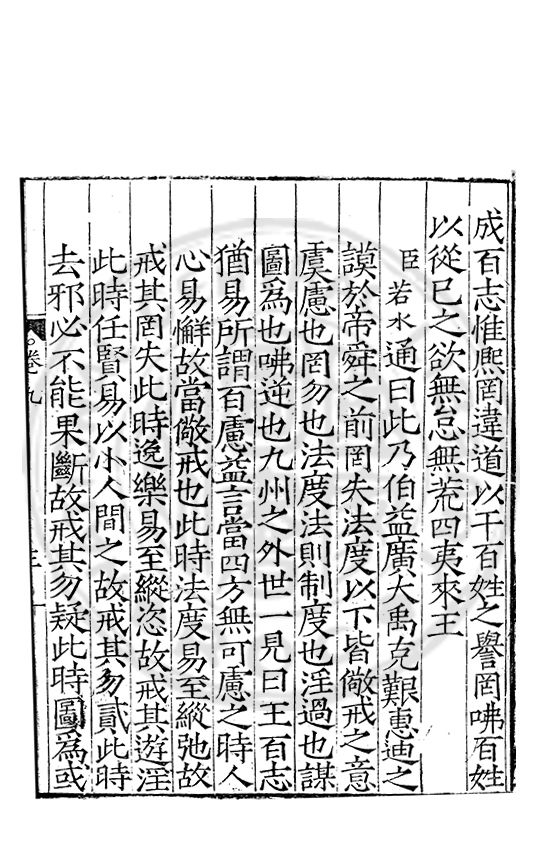 成百志惟熈罔違道以干百姓之譽罔咈百姓
以從已之欲無怠無荒四夷來王
臣若水通曰此乃伯益廣大禹克艱惠迪之
謨於帝舜之前罔失法度以下皆儆戒之意
虞慮也罔勿也法度法則制度也淫過也謀
圖爲也咈逆也九州之外世一見曰王百志
猶易所謂百慮益言當四方無可慮之時人
心易懈故當儆戒也此時法度易至縱弛故
戒其罔失此時逸樂易至縱恣故戒其遊淫
此時任賢易以小人間之故戒其勿貳此時
去邪必不能果斷故戒其勿疑此時圖爲或
卷九